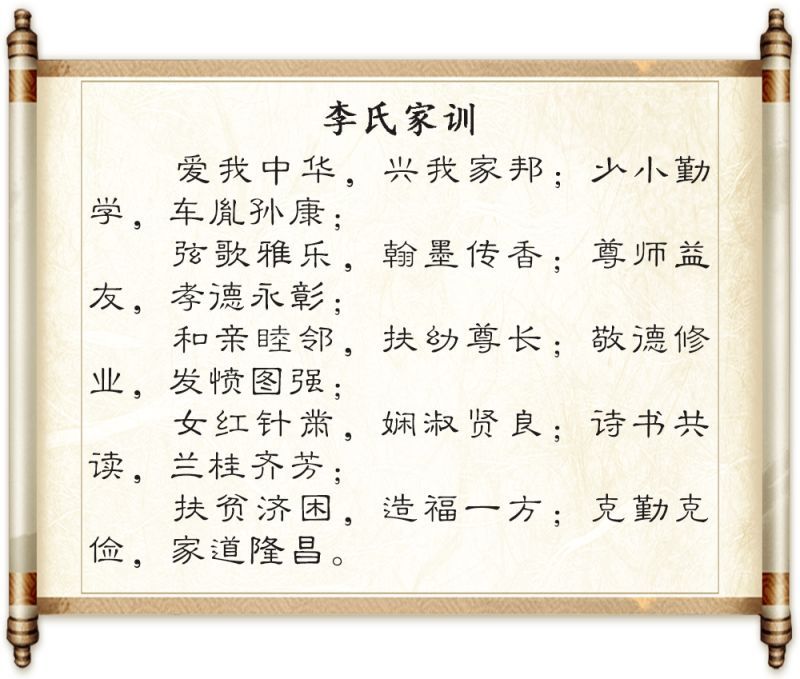 李氏家训
爱我中华，兴我家邦；少小勤
学，车胤孙康；
弦歌雅乐，翰墨传香；尊师益
友，孝德永彰；
和亲睦邻，扶幼尊长；敬德修
业，发愤图强；
女红针黹，娴淑贤良；诗书共
读，兰桂齐芳；
扶贫济困，造福一方；克勤克
俭，家道隆昌。